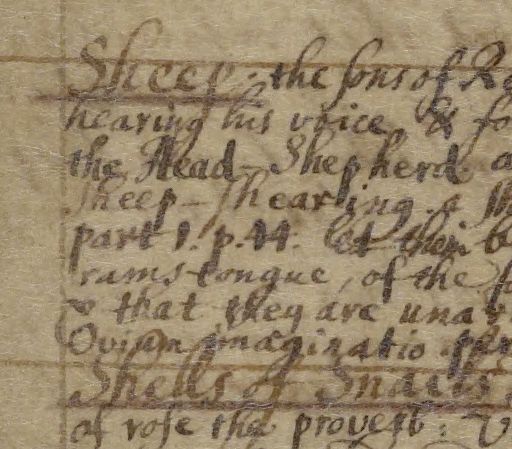 Sheep. the sons of
hearing his voice &
the Head-Shepherd.
Sheep-shearing. a
part 1. p. 44. let them
rams-tongue, of the
& that they are
Ovium imaginatio
Shells of Snails
of rose the proverb: